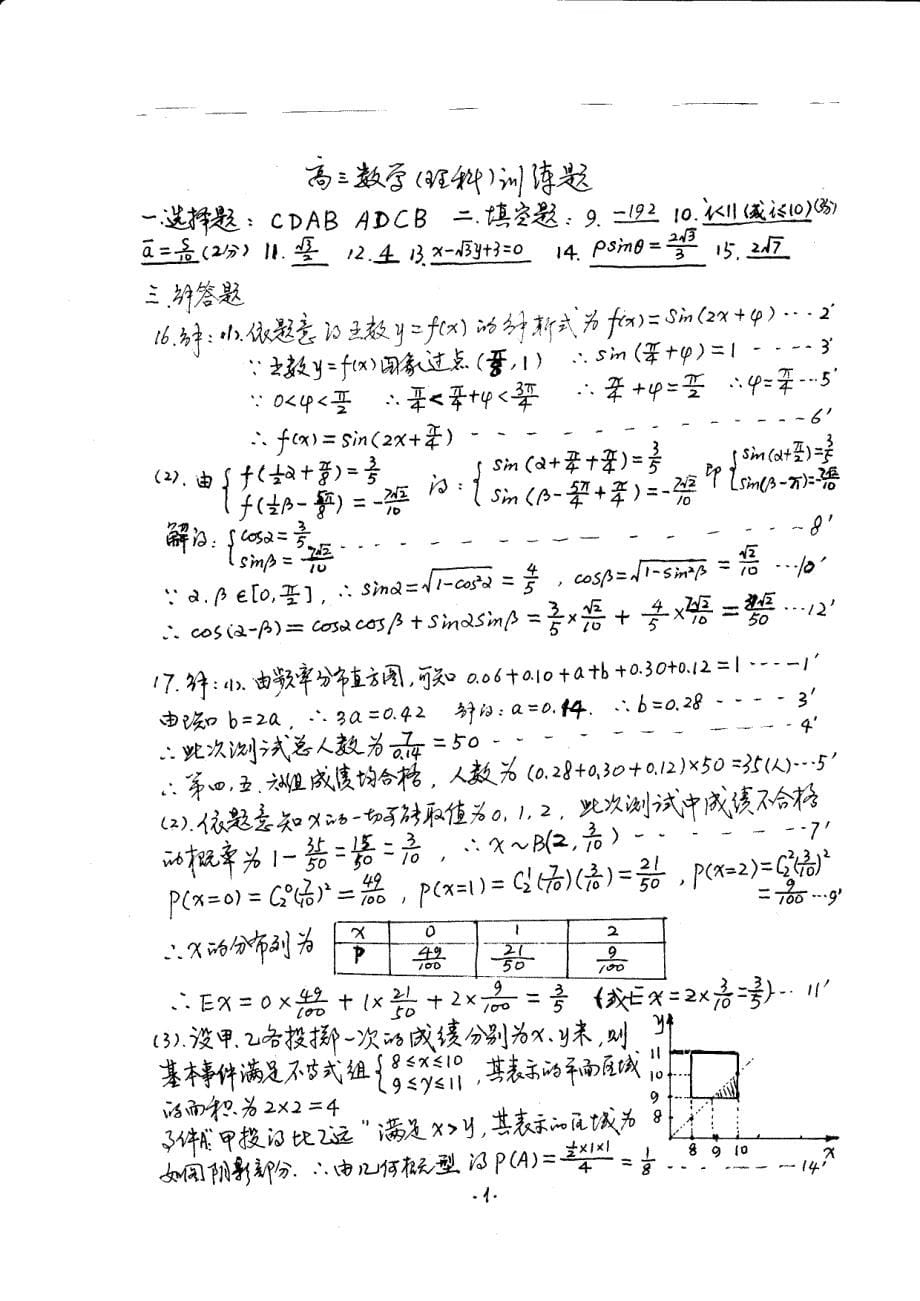 高三数学(理科)训练题
一.选择题：CDAB ADCB 二.填空题：9. -192 10. i<11(或i≤10)(3分)
ā=S/10 (2分) 11. √3/2 12. 4 13. x-√3y+3=0 14. ρsinθ=2√3/3 15. 2√7
三.解答题
16.解：(1).依题意得函数y=f(x)的解析式为f(x)=sin(2x+φ)…2′
∵函数y=f(x)图象过点(π/8,1) ∴sin(π/4+φ)=1 ----3′
∵0<φ<π/2 ∴π/4<π/4+φ<3π/4 ∴π/4+φ=π/2 ∴φ=π/4…5′
∴f(x)=sin(2x+π/4)------------6′
(2).由{f(½α+π/8)=3/5 f(½β-5π/8)=-7√2/10 得：{sin(α+π/4+π/4)=3/5 sin(β-5π/4+π/4)=-7√2/10 即{sin(α+π/2)=3/5 sin(β-π)=-7√2/10
解得：{cosα=3/5 sinβ=7√2/10------------8′
∵α.β∈[0,π/2], ∴sinα=√1-cos²α=4/5, cosβ=√1-sin²β=√2/10…10′
∴cos(α-β)=cosαcosβ+sinαsinβ=3/5×√2/10+4/5×7√2/10=31√2/50…12′
17.解：(1).由频率分布直方图,可知0.06+0.10+a+b+0.30+0.12=1----1′
由已知b=2a, ∴3a=0.42 解得：a=0.14. ∴b=0.28----3′
∴此次测试总人数为7/0.14=50------------4′
∴第四,五.六组成绩均合格, 人数为(0.28+0.30+0.12)×50=35(人)…5′
(2).依题意知X的一切可能取值为0,1,2, 此次测试中成绩不合格
的概率为1-35/50=15/50=3/10, ∴X~B(2,3/10)--------7′
P(X=0)=C₂⁰(7/10)²=49/100, P(X=1)=C₂¹(7/10)(3/10)=21/50, P(X=2)=C₂²(3/10)²
=9/100…9′
∴X的分布列为 X 0 1 2
P 49/100 21/50 9/100
∴EX=0×49/100+1×21/50+2×9/100=3/5 (或EX=2×3/10=3/5)…11′
(3).设甲.乙各投掷一次的成绩分别为x、y米,则
基本事件满足不等式组{8≤x≤10 9≤y≤11, 其表示的平面区域
的面积为2×2=4
事件"甲投得比乙远"满足x>y,其表示的区域为
如图阴影部分. ∴由几何概型得P(A)=½×1×1/4=1/8------14′
y
11
10
9
8
8 9 10 x
·1·